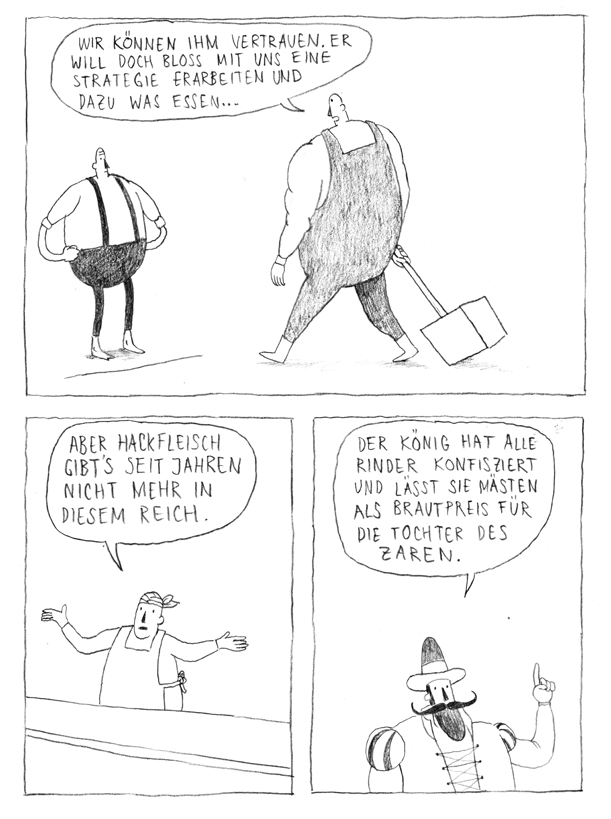 WIR KÖNNEN IHM VERTRAUEN. ER
WILL DOCH BLOSS MIT UNS EINE
STRATEGIE ERARBEITEN UND
DAZU WAS ESSEN...
ABER HACKFLEISCH
GIBT'S SEIT JAHREN
NICHT MEHR IN
DIESEM REICH.
DER KÖNIG HAT ALLE
RINDER KONFISZIERT
UND LÄSST SIE MÄSTEN
ALS BRAUTPREIS FÜR
DIE TOCHTER DES
ZAREN.